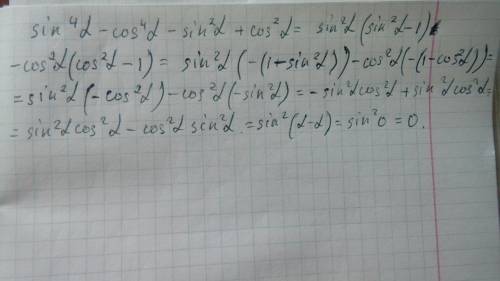 sin⁴α - cos⁴α - sin²α + cos²α = sin²α (sin²α - 1)
- cos²α (cos²α - 1) = sin²α (-(1 - sin²α)) - cos²α (-(1 - cos²α)) =
= sin²α (- cos²α) - cos²α (- sin²α) = - sin²α cos²α + sin²α cos²α =
= sin²α cos²α - cos²α sin²α = sin²(α - α) = sin²0 = 0.